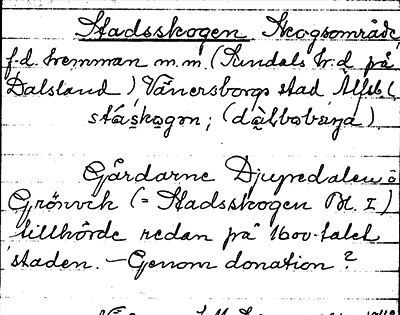 Stadsskogen Skogsområde,
f.d. hemman m.m. (Sundals hd. på
Dalsland), Vänersborgs stad Älfsb.
stáskogn; (dàlbobaŋa)
Gårdarne Djupedalen o
Grönvik (= Stadsskogen N. I)
tillhörde redan på 1600-talet
staden. – Genom donation?